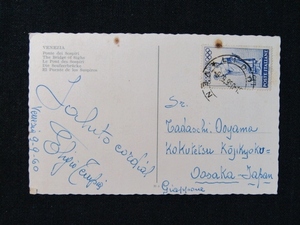 VENEZIA
Ponte dei Sospiri
The Bridge of Sighs
Le Pont des Soupirs
Die Seufzerbrücke
El Puente de los Suspiros
Saluto cordial
Venezia 9-9-60
Sr.
Tadaschi Ooyama
Kokutetsu Kojikyoku-
Oosaka - Japan
Giappone